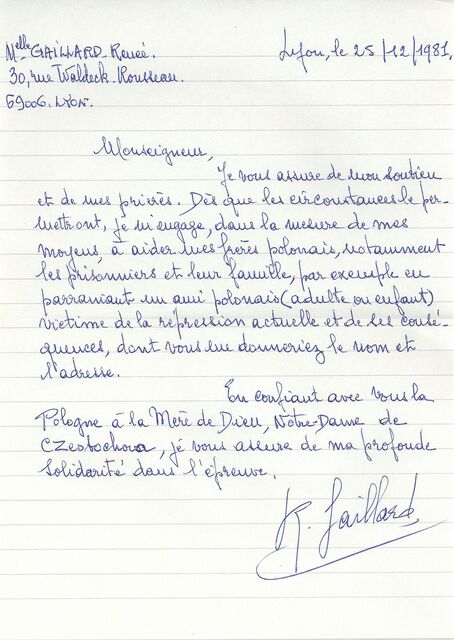 Melle GAILLARD. Renée.
30, rue Waldeck. Rousseau.
69006. LYON.
Lyon, le 25/12/1981.
Monseigneur,
Je vous assure de mon soutien
et de mes prières. Dès que les circonstances le per-
mettront, je m'engage, dans la mesure de mes
moyens, à aider mes frères polonais, notamment
les prisonniers et leur famille, par exemple en
parrainant un ami polonais (adulte ou enfant)
victime de la répression actuelle et de ses consé-
quences, dont vous me donneriez le nom et
l'adresse.
En confiant avec vous la
Pologne à la Mère de Dieu, Notre-Dame de
Czestochova, je vous assure de ma profonde
solidarité dans l'épreuve.
R. Gaillard